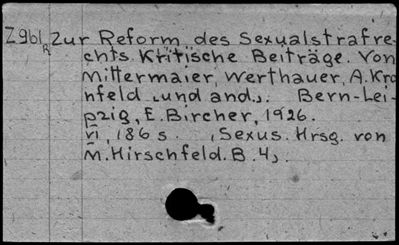 Z9bl
R
Zur Reform des Sexualstrafre-
chts. Kritische Beiträge. Von
Mittermaier, Werthauer, A. Kro
nfeld (und and.). Bern-Lei-
pzig, E. Bircher, 1926.
VI, 186 s. (Sexus. Hrsg. von
M. Hirschfeld. B. 4).